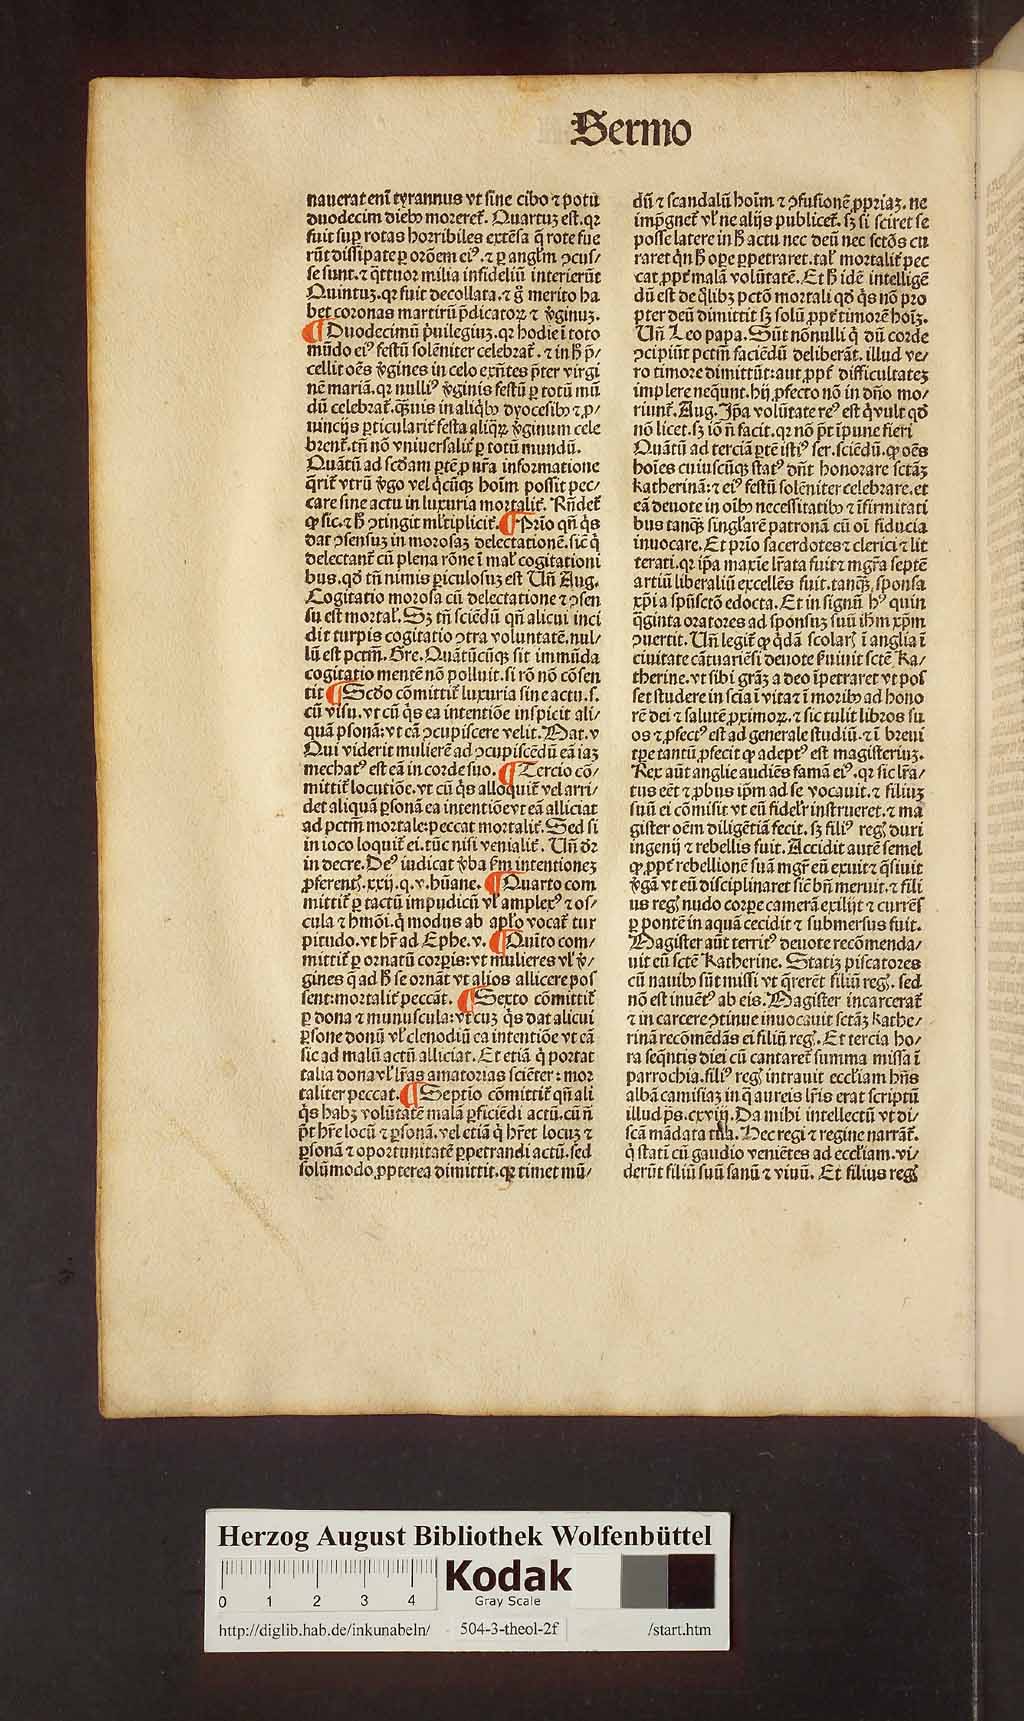 Sermo
nauerat enī tyrannus vt sine cibo ⁊ potu
duodecim diebꝰ morereť. Quartuꝫ est. qꝛ
fuit suꝑ rotas horribiles extēsa q̄ rote fue
rūt dissipate ꝑ orōem eiꝰ. ⁊ ꝑ angľm ꝯcus/
se sunt. ⁊ q̄ttuor milia infideliū interierūt
Quintuꝫ. qꝛ fuit decollata. ⁊ g̊ merito ha
bet coronas martirū p̄dicatoꝝ ⁊ v̓ginuꝫ.
¶ Duodecimū p̓uilegiuꝫ. qꝛ hodie ī toto
mūdo eiꝰ festū solēniter celebrať. ⁊ in hͦ p̄/
cellit oēs v̓gines in celo exn̄tes p̄ter virgi
nē mariā. qꝛ nulliꝰ v̓ginis festū ꝑ totū mū
dū celebrať. qͣꝫuis in aliq̓bꝰ dyocesibꝰ ⁊ ꝓ/
uincijs ꝑticulariť festa aliqͣꝝ v̓ginum cele
brenť. tn̄ nō vniuersaliť ꝑ totū mundū.
Quātū ad scd̓am ꝑtē ꝓ nr̄a informatione
q̄riť vtrū v̓go vel q̓cūqꝫ hoīm possit pec/
care sine actu in luxuria mortaliť. Rn̄deť
ꝙ sic. ⁊ hͦ ꝯtingit mľtipliciť. ¶ Prīo qn̄ q̓s
dat ꝯsensuꝫ in morosaꝫ delectationē. sic̄ q̓
delectanť cū plena rōne ī maľ cogitationi
bus. qd̓ tn̄ nimis ꝑiculosuꝫ est Vn̄ Aug.
Cogitatio morosa cū delectatione ⁊ ꝯsen
su est mortaľ. Sꝫ tn̄ sciēdū qn̄ alicui inci
dit turpis cogitatio ꝯtra voluntatē. nul/
lū est pctm̄. Gre. Quātūcūqꝫ sit immūda
cogitatio mentē nō polluit. si rō nō cōsen
tit ¶ Scd̓o cōmittiť luxuria sine actu. s.
cū visu. vt cū q̓s ea intentiōe inspicit ali/
quā ꝑsonā: vt eā ꝯcupiscere velit. Mat. v
Qui viderit mulierē ad ꝯcupiscēdū eā iaꝫ
mechatꝰ est eā in corde suo. ¶ Tercio cō/
mittiť locutiōe. vt cū q̓s alloquiť vel arri/
det aliquā ꝑsonā ea intentiōe vt eā alliciat
ad pctm̄ mortale: peccat mortaliť. Sed si
in ioco loquiť ei. tūc nisi venialiť. Vn̄ dr̄
in decre. Deꝰ iudicat v̓ba sm̄ intentioneꝫ
ꝓferentꝭ. xxij. q. v. hūane. ¶ Quarto com
mittiť ꝑ tactū impudicū vľ amplexꝰ ⁊ os/
cula ⁊ hmōi. q̓ modus ab apľo vocať tur
pitudo. vt hr̄ ad Ephe. v. ¶ Quīto com/
mittiť ꝑ ornatū corꝑis: vt mulieres vľ v̓/
gines q̄ ad hͦ se ornāt vt alios allicere pos
sent: mortaliť peccāt. ¶ Sexto cōmittiť
ꝑ dona ⁊ munuscula: vt cuꝫ q̓s dat alicui
ꝑsone donū vľ clenodiū ea intentiōe vt eā
sic ad malū actū alliciat. Et etiā q̓ portat
talia dona vľ lr̄as amatorias sciēter: mor
taliter peccat. ¶ Septīo cōmittiť qn̄ ali
q̓s habꝫ volūtatē malā ꝑficiēdi actū. cū n̄
p̄t hr̄e locū ⁊ ꝑsonā. vel etiā q̓ hr̄et locuꝫ ⁊
ꝑsonā ⁊ oportunitatē ꝑpetrandi actū. sed
solūmodo ꝓpterea dimittit. qꝛ timet mū/
dū ⁊ scandalū hoīm ⁊ ꝯfusionē ꝓpriaꝫ. ne
imp̄gneť vľ ne alijs publiceť. sꝫ si sciret se
posse latere in hͦ actu nec deū nec sctōs cu
raret q̓n hͦ oꝑe ꝑpetraret. taľ mortaliť pec
cat ꝓpť malā volūtatē. Et hͦ idē intelligē
dū est de q̓libꝫ pctō mortali qd̓ q̓s nō pro
pter deū dimittit sꝫ solū ꝓpť timorē hoīꝫ.
Vn̄ Leo papa. Sūt nōnulli q̓ dū corde
ꝯcipiūt pctm̄ faciēdū deliberāt. illud ve/
ro timore dimittūt: aut ꝓpť difficultateꝫ
implere neq̄unt. hij ꝓfecto nō in dn̄o mo/
riunť. Aug. Ip̄a volūtate reꝰ est q̓ vult qd̓
nō licet. sꝫ iō n̄ facit. qꝛ nō p̄t īpune fieri
Quātū ad terciā ꝑtē istiꝰ ser. sciēdū. ꝙ oēs
hoīes cuiuscūqꝫ statꝰ dn̄t honorare sctāꝫ
katherinā: ⁊ eiꝰ festū solēniter celebrare. et
eā deuote in oībꝰ necessitatibꝰ ⁊ īfirmitati
bus tanqꝫ singľarē patronā cū oī fiducia
inuocare. Et prīo sacerdotes ⁊ clerici ⁊ lit
terati. qꝛ ip̄a maxīe lr̄ata fuit ⁊ mgr̄a septē
artiū liberaliū excellēs fuit. tanqͣꝫ sponsa
xp̄i a spūsctō edocta. Et in signū hꝰ quin
q̄ginta oratores ad sponsuꝫ suū ihm̄ xp̄m
ꝯuertit. Vn̄ legiť ꝙ q̓dā scolarꝭ ī anglia ī
ciuitate cātuariēsi deuote ẜuiuit sctē Ka/
therine. vt sibi grāꝫ a deo īpetraret vt pos
set studere in scīa ī vita ⁊ ī moribꝰ ad hono
rē dei ⁊ salutē ꝓximoꝝ. ⁊ sic tulit libros su
os ⁊ ꝓfectꝰ est ad generale studiū. ⁊ ī breui
tꝑe tantū ꝓfecit ꝙ adeptꝰ est magisteriuꝫ.
Rex aūt anglie audiēs famā eiꝰ. qꝛ sic lr̄a/
tus eēt ⁊ ꝓbus ip̄m ad se vocauit. ⁊ filiuꝫ
suū ei cōmisit vt eū fideľr instrueret. ⁊ ma
gister oēm diligētiā fecit. sꝫ filiꝰ regꝭ duri
ingenij ⁊ rebellis fuit. Accidit autē semel
ꝙ ꝓpť rebellionē suā mgr̄ eū exuit ⁊ q̄siuit
v̓gā vt eū disciplinaret sic̄ bn̄ meruit. ⁊ fili
us regꝭ nudo corꝑe camerā exilijt ⁊ currēs
ꝑ pontē in aquā cecidit ⁊ submersus fuit.
Magister aūt territꝰ deuote recōmenda/
uit eū sctē Katherine. Statiꝫ piscatores
cū nauibꝰ sūt missi vt q̄rerēt filiū regꝭ. sed
nō est inuētꝰ ab eis. Magister incarcerať
⁊ in carcere ꝯtinue inuocauit sctāꝫ kathe/
rinā recōmēdās ei filiū regꝭ. Et tercia ho/
ra seq̄ntis diei cū cantareť summa missa ī
parrochia. filiꝰ regꝭ intrauit eccľiam hn̄s
albā camisiaꝫ in q̄ aureis lr̄is erat scriptū
illud ps̄. cxviij. Da mihi intellectū vt di/
scā mādata tua. Hec regi ⁊ regine narrāť.
q̓ statī cū gaudio veniētes ad eccľiam. vi/
derūt filiū suū sanū ⁊ viuū. Et filius regꝭ
Herzog August Bibliothek Wolfenbüttel
0 1 2 3 4
Kodak
Gray Scale
http://diglib.hab.de/inkunabeln/ 504-3-theol-2f /start.htm